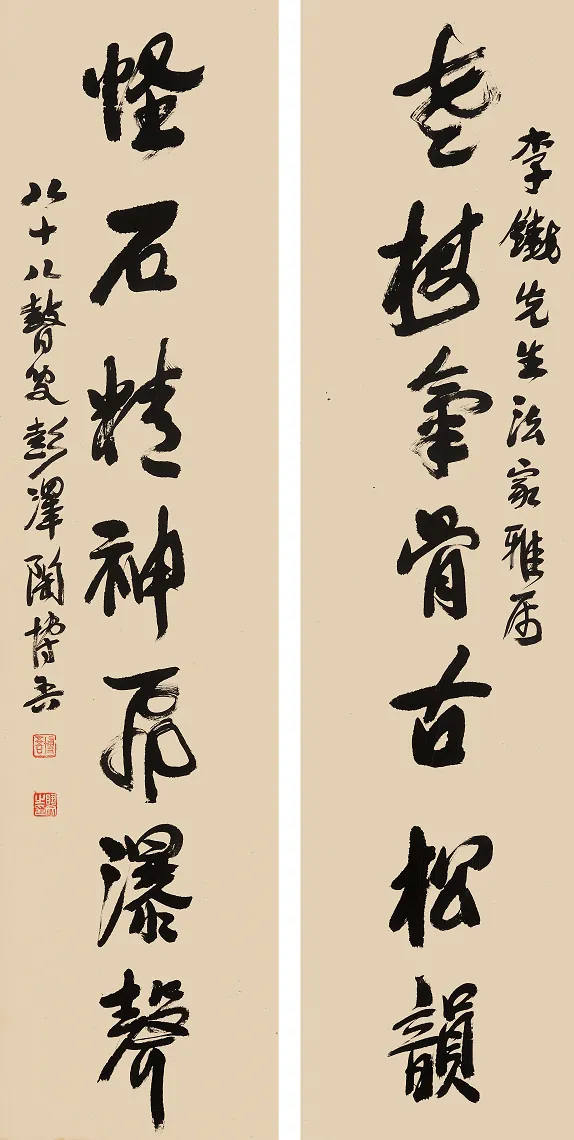 李鐵先生法家雅属
老樹氣骨古松韻
怪石精神飛瀑聲
八十八瞽叟彭澤陶博吾